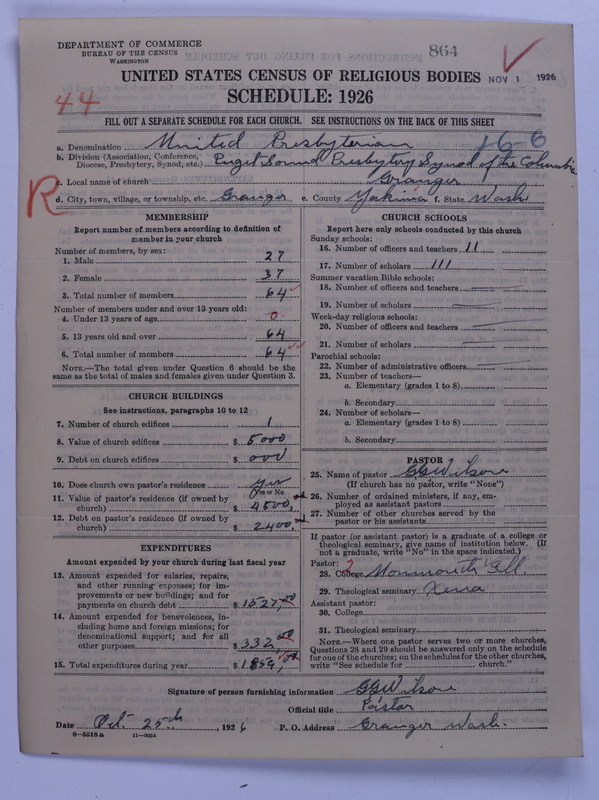 DEPARTMENT OF COMMERCE
BUREAU OF THE CENSUS
WASHINGTON
864
UNITED STATES CENSUS OF RELIGIOUS BODIES NOV 1 1926
SCHEDULE: 1926
44
FILL OUT A SEPARATE SCHEDULE FOR EACH CHURCH. SEE INSTRUCTIONS ON THE BACK OF THIS SHEET
a. Denomination United Presbyterian 16-6
b. Division (Association, Conference, Diocese, Presbytery, Synod, etc.) Puget Sound Presbytery Synod of the Columbia
c. Local name of church Granger
R
d. City, town, village, or township, etc. Granger e. County Yakima f. State Wash
MEMBERSHIP
Report number of members according to definition of
member in your church
Number of members, by sex:
1. Male 27
2. Female 37
3. Total number of members 64
Number of members under and over 13 years old:
4. Under 13 years of age 0
5. 13 years old and over 64
6. Total number of members 64
NOTE.—The total given under Question 6 should be the
same as the total of males and females given under Question 3.
CHURCH BUILDINGS
See instructions, paragraphs 10 to 12
7. Number of church edifices 1
8. Value of church edifices $ 5000
9. Debt on church edifices $ 000
10. Does church own pastor's residence? Yes
Yes or No
11. Value of pastor's residence (if owned by
church) $ 4500
12. Debt on pastor's residence (if owned by
church) $ 2400
EXPENDITURES
Amount expended by your church during last fiscal year
13. Amount expended for salaries, repairs,
and other running expenses; for im-
provements or new buildings; and for
payments on church debt $ 1527.00
14. Amount expended for benevolences, in-
cluding home and foreign missions; for
denominational support; and for all
other purposes $ 332.00
15. Total expenditures during year $ 1859.00
CHURCH SCHOOLS
Report here only schools conducted by this church
Sunday schools:
16. Number of officers and teachers 11
17. Number of scholars 111
Summer vacation Bible schools:
18. Number of officers and teachers
19. Number of scholars
Week-day religious schools:
20. Number of officers and teachers
21. Number of scholars
Parochial schools:
22. Number of administrative officers
23. Number of teachers—
a. Elementary (grades 1 to 8)
b. Secondary
24. Number of scholars—
a. Elementary (grades 1 to 8)
b. Secondary
PASTOR
25. Name of pastor GGWilson
(If church has no pastor, write "None")
26. Number of ordained ministers, if any, em-
ployed as assistant pastors
27. Number of other churches served by the
pastor or his assistants
If pastor (or assistant pastor) is a graduate of a college or
theological seminary, give name of institution below. (If
not a graduate, write "No" in the space indicated.)
Pastor:
28. College Monmouth Coll.
29. Theological seminary Xenia
Assistant pastor:
30. College
31. Theological seminary
NOTE.—Where one pastor serves two or more churches,
Questions 28 and 29 should be answered only on the schedule
for one of the churches; on the schedules for the other churches,
write "See schedule for church."
Signature of person furnishing information GGWilson
Official title Pastor
Date Oct. 25th, 1926 P. O. Address Granger Wash.
8—5518 a 11—9054